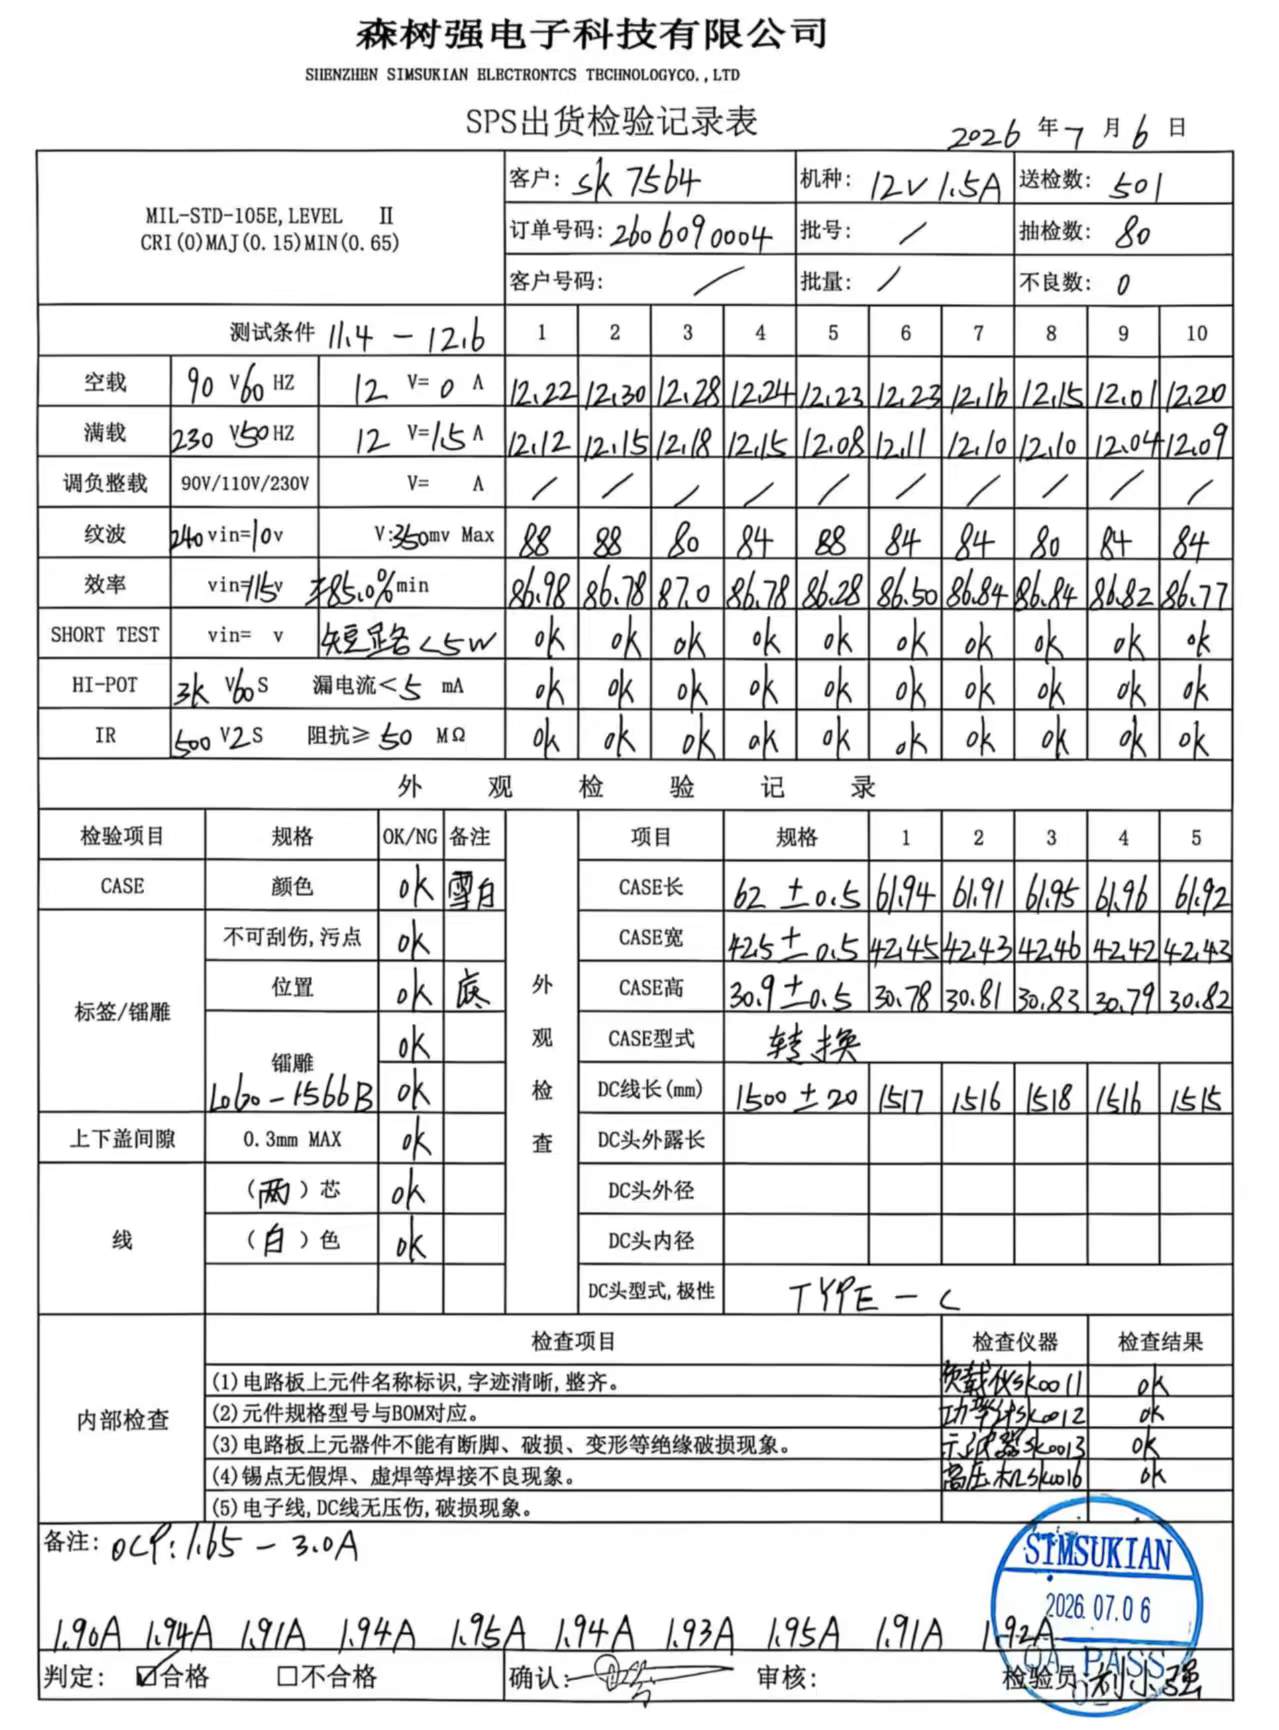 森树强电子科技有限公司
SHENZHEN SIMSUKIAN ELECTRONTCS TECHNOLOGYCO.,LTD
SPS出货检验记录表
2026 年 7 月 6 日
MIL-STD-105E,LEVEL Ⅱ
CRI(0)MAJ(0.15)MIN(0.65)
客户: SK 7564 机种: 12V 1.5A 送检数: 501
订单号码: 2606090004 批号: / 抽检数: 80
客户号码: / 批量: / 不良数: 0
测试条件 11.4 - 12.6 1 2 3 4 5 6 7 8 9 10
空载 90 V 60 HZ 12 V= 0 A 12.22 12.30 12.28 12.24 12.23 12.23 12.16 12.15 12.01 12.20
满载 230 V 50 HZ 12 V= 1.5 A 12.12 12.15 12.18 12.15 12.08 12.11 12.10 12.10 12.04 12.09
调负整载 90V/110V/230V V= A / / / / / / / / / /
纹波 240 vin=10v V:350mv Max 88 88 80 84 88 84 84 80 84 84
效率 vin=115v ≥85.0% min 86.98 86.78 87.0 86.78 86.28 86.50 86.84 86.84 86.82 86.77
SHORT TEST vin= v 短路<5W ok ok ok ok ok ok ok ok ok ok
HI-POT 3k V 60 S 漏电流< 5 mA ok ok ok ok ok ok ok ok ok ok
IR 500 V 2 S 阻抗≥ 50 MΩ ok ok ok ok ok ok ok ok ok ok
外观检验记录
检验项目 规格 OK/NG 备注 项目 规格 1 2 3 4 5
CASE 颜色 ok 雪白 CASE长 62 ±0.5 61.94 61.91 61.95 61.96 61.92
不可刮伤,污点 ok CASE宽 42.5±0.5 42.45 42.43 42.46 42.42 42.43
标签/镭雕 位置 ok 底 CASE高 30.9±0.5 30.78 30.81 30.83 30.79 30.82
外观检查
镭雕 ok CASE型式 转换
LOGO-1566B ok DC线长(mm) 1500±20 1517 1516 1518 1516 1515
上下盖间隙 0.3mm MAX ok DC头外露长
线 (两)芯 ok DC头外径
(白)色 ok DC头内径
DC头型式,极性 TYPE-C
内部检查 检查项目 检查仪器 检查结果
(1)电路板上元件名称标识,字迹清晰,整齐。 负载仪SK0011 ok
(2)元件规格型号与BOM对应。 功率计SK0012 ok
(3)电路板上元器件不能有断脚、破损、变形等绝缘破损现象。 示波器SK0013 ok
(4)锡点无假焊、虚焊等焊接不良现象。 高压机SK0016 ok
(5)电子线,DC线无压伤,破损现象。
备注: OCP:1.65 - 3.0A
SIMSUKIAN
2026.07.06
QA PASS
1.90A 1.94A 1.91A 1.94A 1.95A 1.94A 1.93A 1.95A 1.91A 1.92A
判定: ☑合格 □不合格 确认: 审核: 检验员:刘小强